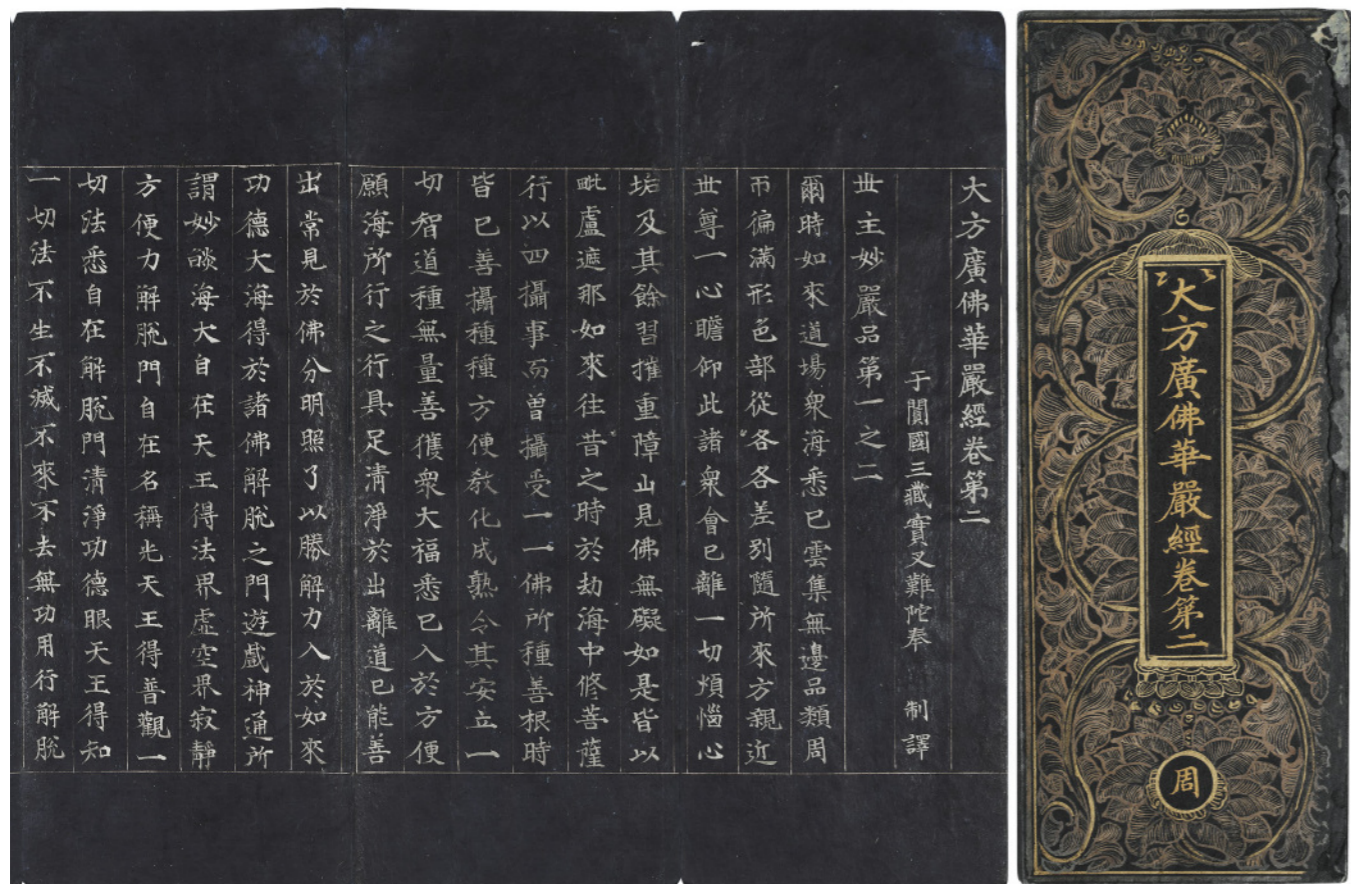 大方廣佛華嚴經卷第二
周
大方廣佛華嚴經卷第二
于闐國三藏實叉難陀奉 制譯
世主妙嚴品第一之二
爾時如來道場衆海悉已雲集無邊品類周
帀徧滿形色部從各各差別隨所來方親近
世尊一心瞻仰此諸衆會已離一切煩惱心
垢及其餘習摧重障山見佛無礙如是皆以
毗盧遮那如來往昔之時於劫海中修菩薩
行以四攝事而曾攝受一一佛所種善根時
皆已善攝種種方便敎化成熟令其安立一
切智道種無量善獲衆大福悉已入於方便
願海所行之行具足清淨於出離道已能善
出常見於佛分明照了以勝解力入於如來
功德大海得於諸佛解脫之門遊戲神通所
謂妙燄海大自在天王得法界虛空界寂靜
方便力解脫門自在名稱光天王得普觀一
切法悉自在解脫門清淨功德眼天王得知
一切法不生不滅不來不去無功用行解脫